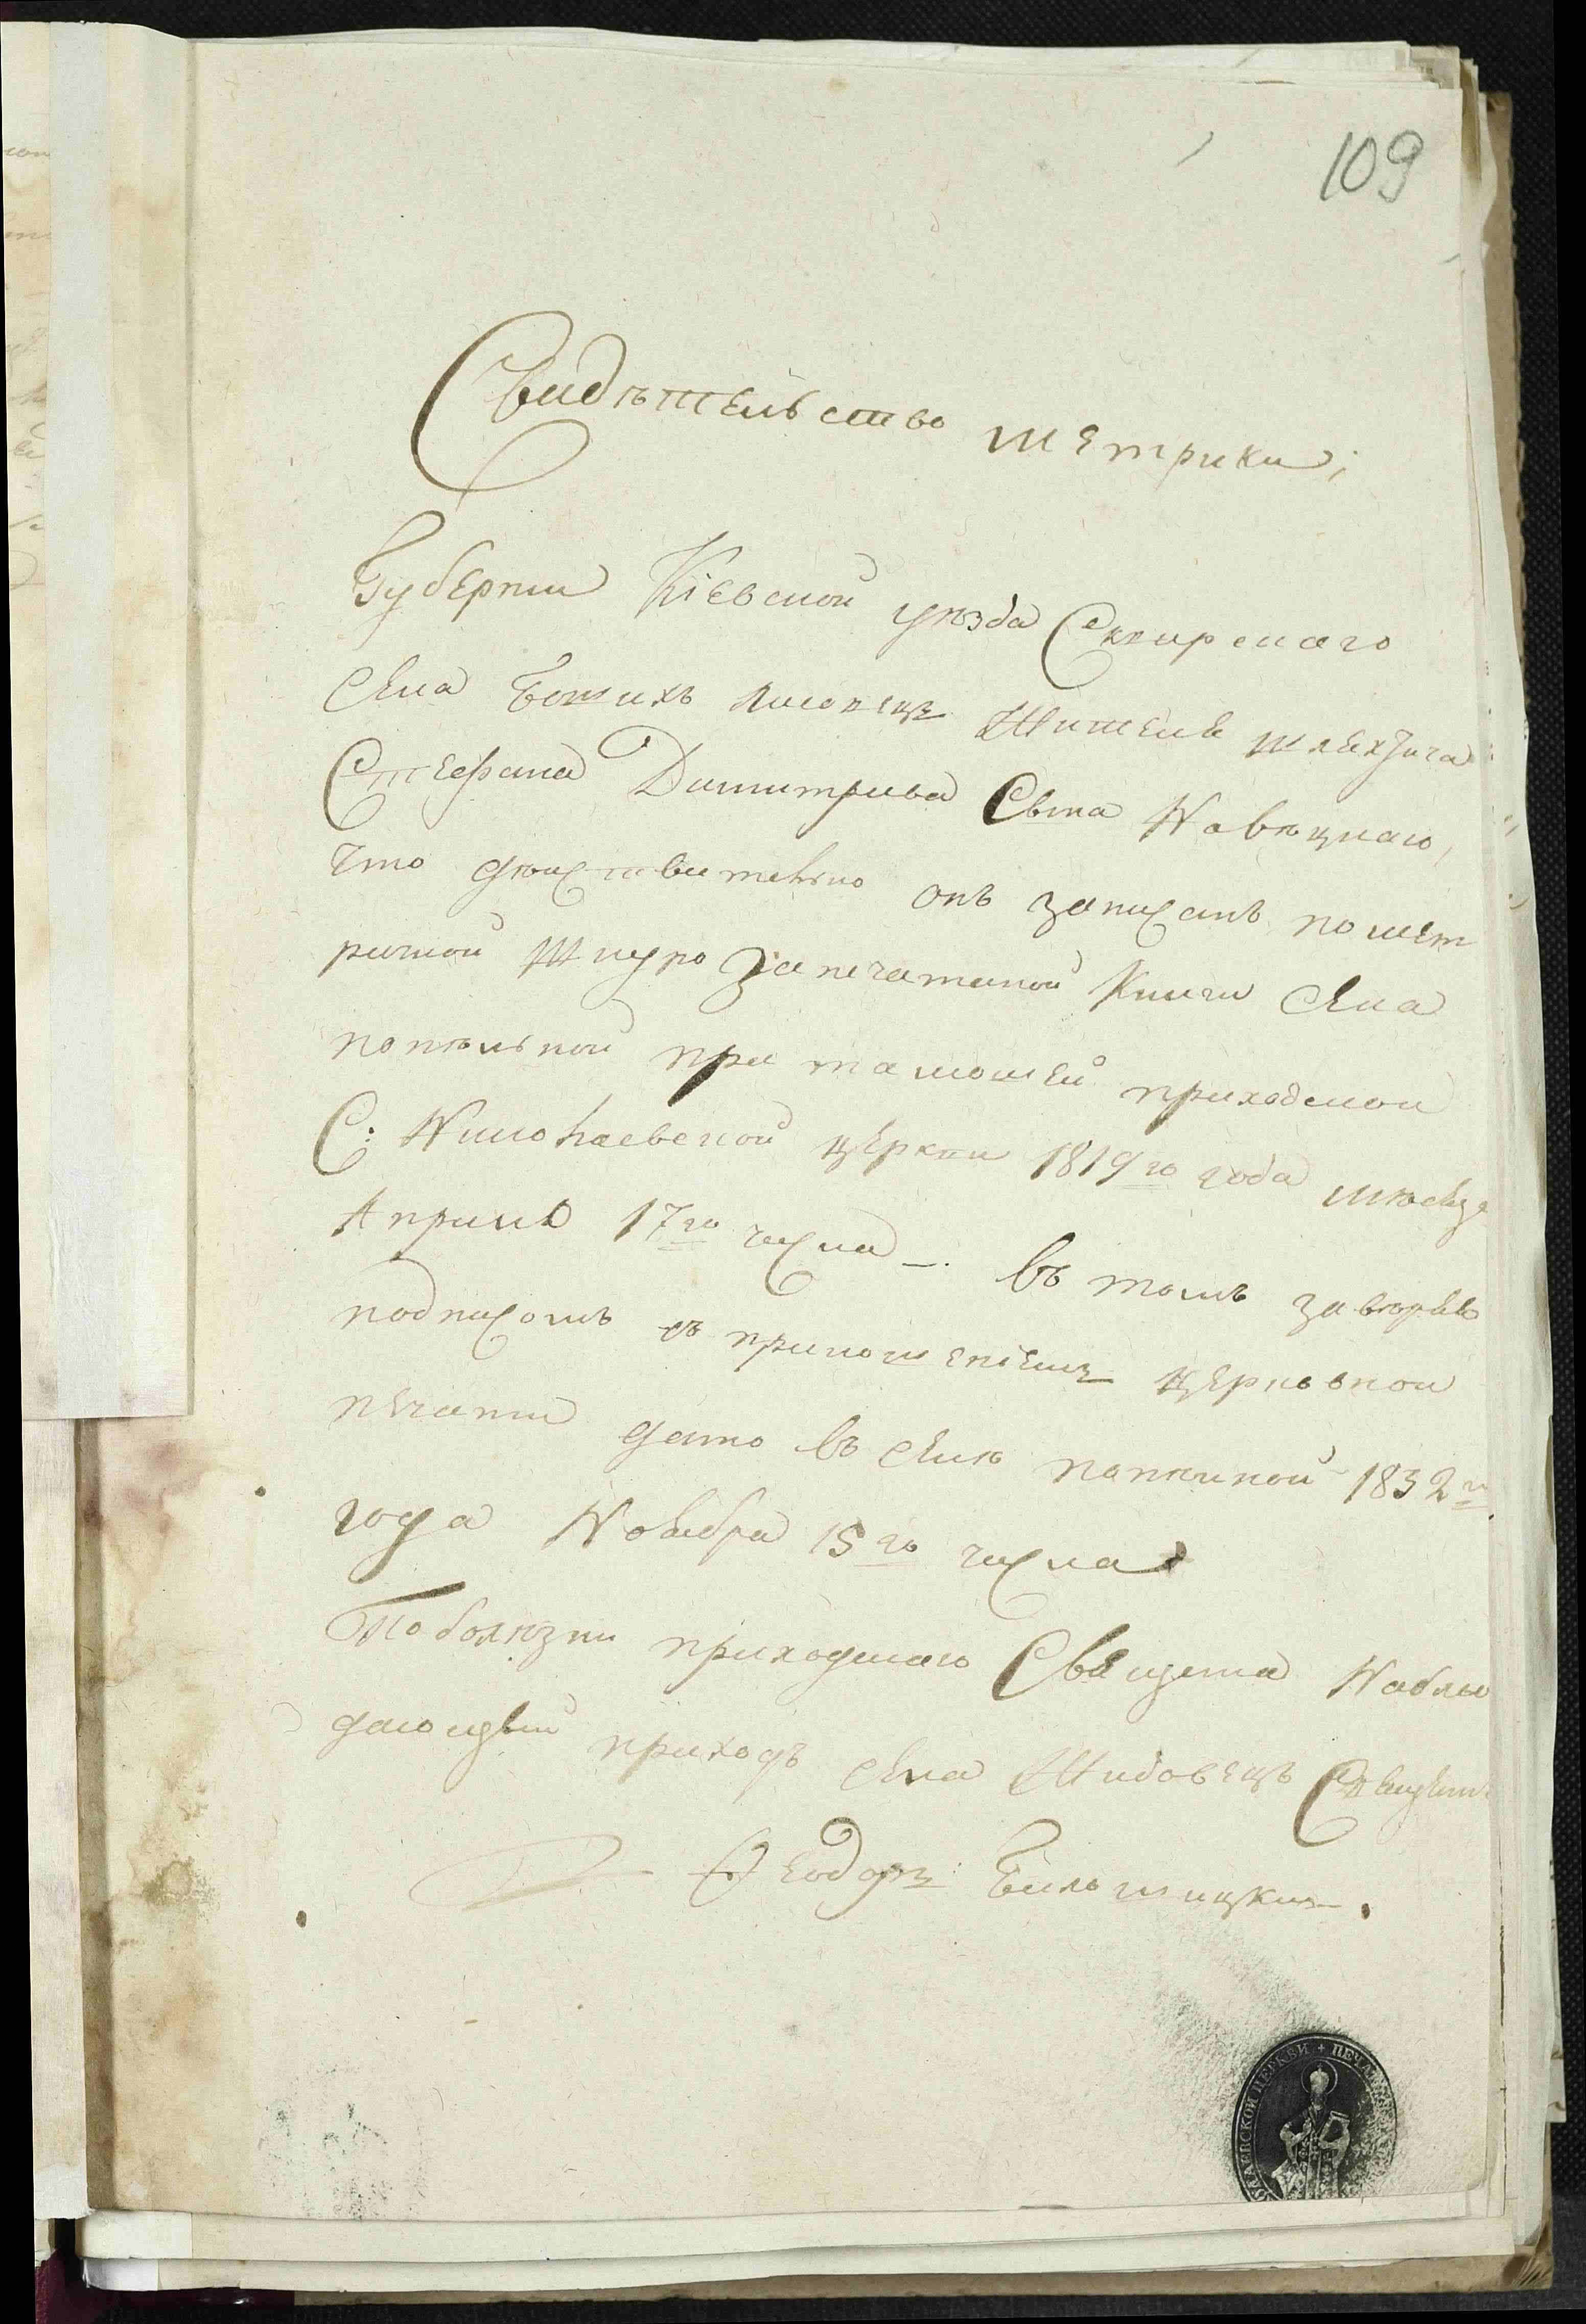 109
Свидѣтельство метрики;
Губернии Кіевской уѣзда Сквирскаго
села Божихъ лисовецъ Жителя шляхтича
Стефана Димитриева Сына Новѣцкаго,
что дѣйствительно онъ записанъ по мет
ричной Шнуро запечатаной Книги села
попѣльной при таможей приходской
С: Николаевской церкви 1819го года мѣсяца
Априля 17го числа –. въ томъ завѣряю
подписомъ съ приложеніемъ церковной
печати дано въ селѣ попѣльной 1832го
года Ноября 15го числа
По болѣзни приходскаго Священа Наблю
дающый приходъ села Жидовецъ Священ
Феодоръ
ОЛАЕВСКОЙ ЦЕРКВИ + ПЕЧА